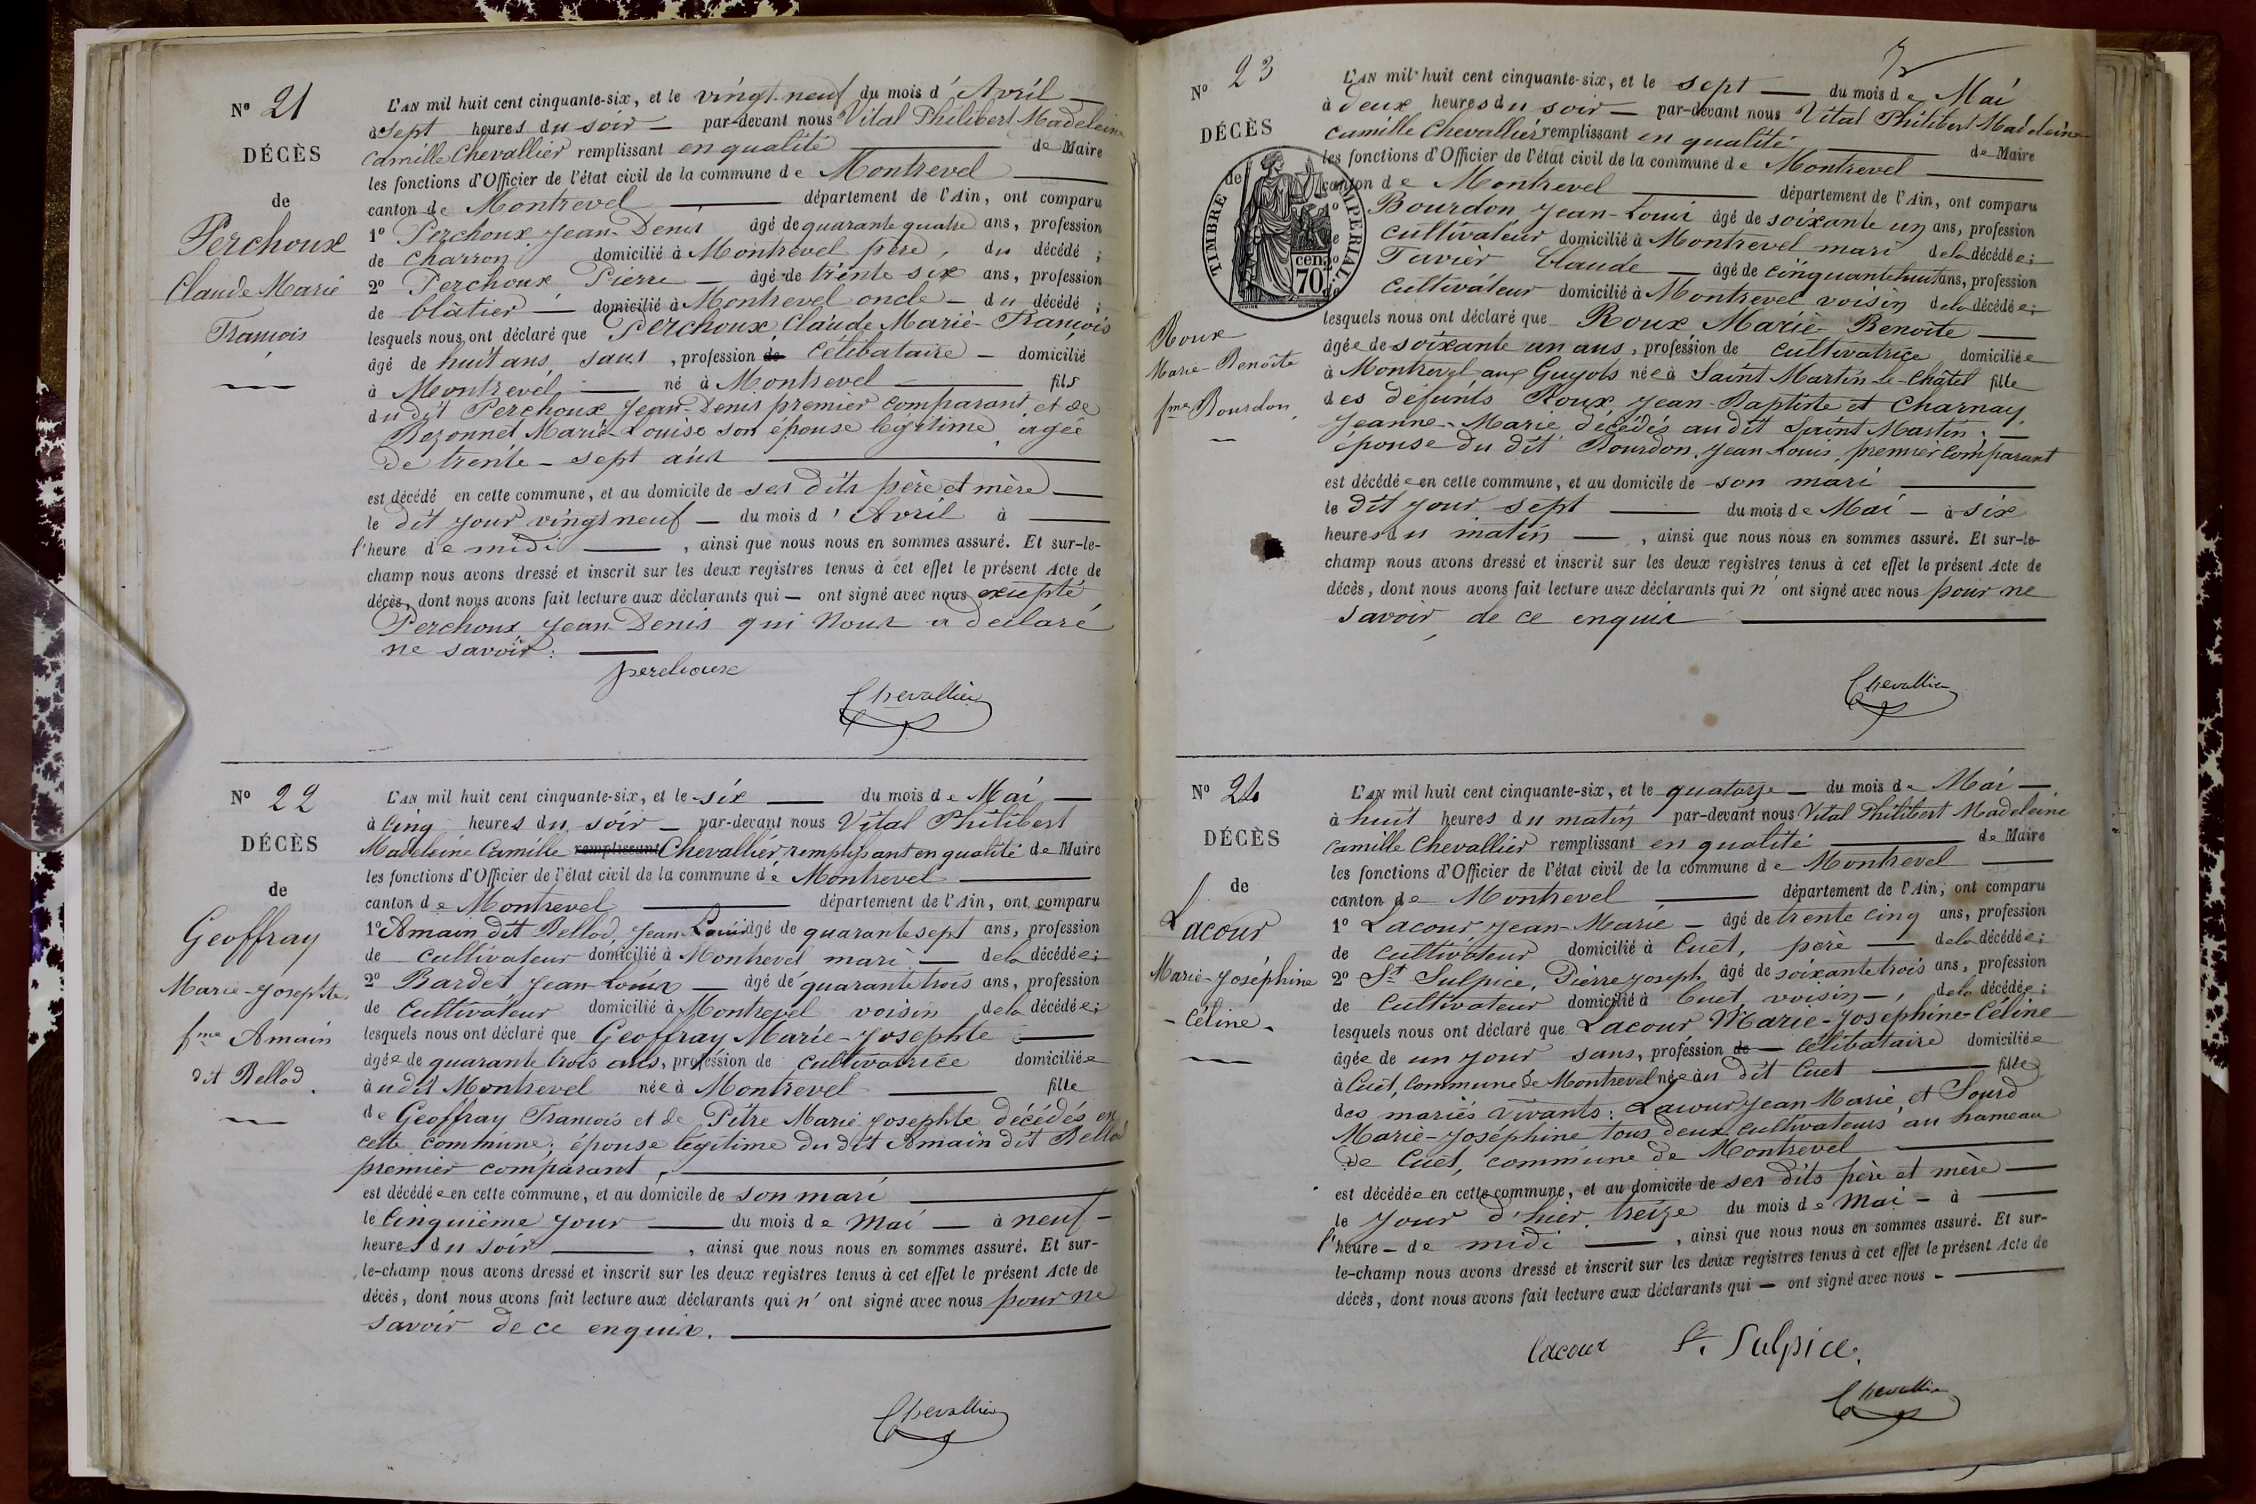 N° 21
DÉCÈS
de
Perchoux
Claude Marie
François
L'AN mil huit cent cinquante-six, et le vingt-neuf du mois d'Avril
à sept heures du soir par-devant nous Vital Philibert Madeleine
Camille Chevallier remplissant en qualité de Maire
les fonctions d'Officier de l'état civil de la commune de Montrevel
canton de Montrevel département de l'Ain, ont comparu
1° Perchoux Jean-Denis âgé de quarante quatre ans, profession
de charron domicilié à Montrevel père, du décédé ;
2° Perchoux Pierre âgé de trente six ans, profession
de blâtier domicilié à Montrevel oncle du décédé ;
lesquels nous ont déclaré que Perchoux Claude Marie-François
âgé de huit ans, sans, profession de célibataire domicilié
à Montrevel né à Montrevel fils
du dit Perchoux Jean-Denis premier comparant et de
Bezonnet Marie-Louise son épouse légitime, agée
de trente-sept ans
est décédé en cette commune, et au domicile de ses dits père et mère
le dit jour vingt neuf du mois d'Avril à
l'heure de midi, ainsi que nous nous en sommes assuré. Et sur-le-
champ nous avons dressé et inscrit sur les deux registres tenus à cet effet le présent Acte de
décès, dont nous avons fait lecture aux déclarants qui ont signé avec nous excepté
Perchoux Jean Denis qui Nous a déclaré
ne savoir.
perchoux
Chevallier
N° 22
DÉCÈS
de
Geoffray
Marie-Josephte
fme Amain
dit Bellod
L'AN mil huit cent cinquante-six, et le six du mois de Mai
à Cinq heures du soir par-devant nous Vital Philibert
Madeleine Camille remplissant Chevallier remplissant en qualité de Maire
les fonctions d'Officier de l'état civil de la commune de Montrevel
canton de Montrevel département de l'Ain, ont comparu
1° Amain dit Bellod, Jean Louis âgé de quarante sept ans, profession
de cultivateur domicilié à Montrevel mari de la décédée ;
2° Bardet Jean-Louis âgé de quarante trois ans, profession
de Cultivateur domicilié à Montrevel voisin de la décédée ;
lesquels nous ont déclaré que Geoffray Marie-Josephte
âgée de quarante trois ans, profession de cultivatrice domiciliée
à udit Montrevel née à Montrevel fille
de Geoffray François et de Pitre Marie Josephte décédés en
cette commune ; épouse légitime du dit Amain dit Bellod
premier comparant,
est décédée en cette commune, et au domicile de son mari
le Cinquième jour du mois de Mai à neuf
heures du soir, ainsi que nous nous en sommes assuré. Et sur-
le-champ nous avons dressé et inscrit sur les deux registres tenus à cet effet le présent Acte de
décès, dont nous avons fait lecture aux déclarants qui n'ont signé avec nous pour ne
savoir de ce enquis.
Chevallier
N° 23
DÉCÈS
de
TIMBRE IMPERIAL
70 cen.
Roux
Marie-Benoîte
fme Bourdon
L'AN mil huit cent cinquante-six, et le sept du mois de Mai
à deux heures du soir par-devant nous Vital Philibert Madeleine
Camille Chevallier remplissant en qualité de Maire
les fonctions d'Officier de l'état civil de la commune de Montrevel
canton de Montrevel département de l'Ain, ont comparu
1° Bourdon Jean-Louis âgé de soixante un ans, profession
de cultivateur domicilié à Montrevel mari de la décédée ;
2° Tavier Claude âgé de cinquante huit ans, profession
de cultivateur domicilié à Montrevel voisin de la décédée ;
lesquels nous ont déclaré que Roux Marie-Benoîte
âgée de soixante un ans, profession de cultivatrice domiciliée
à Montrevel aux Guyots née à Saint Martin-le-Châtel fille
des défunts Roux Jean-Baptiste et Charnay
Jeanne-Marie décédés audit Saint Martin ;
épouse du dit Bourdon Jean Louis, premier comparant
est décédée en cette commune, et au domicile de son mari
le dit jour sept du mois de Mai à six
heures du matin, ainsi que nous nous en sommes assuré. Et sur-le-
champ nous avons dressé et inscrit sur les deux registres tenus à cet effet le présent Acte de
décès, dont nous avons fait lecture aux déclarants qui n'ont signé avec nous pour ne
savoir de ce enquis
Chevallier
N° 24
DÉCÈS
de
Lacour
Marie-Joséphine
-Céline-
L'AN mil huit cent cinquante-six, et le quatorze du mois de Mai
à huit heures du matin par-devant nous Vital Philibert Madeleine
Camille Chevallier remplissant en qualité de Maire
les fonctions d'Officier de l'état civil de la commune de Montrevel
canton de Montrevel département de l'Ain, ont comparu
1° Lacour Jean-Marie âgé de trente cinq ans, profession
de cultivateur domicilié à Cuet, père de la décédée ;
2° St Sulpice, Pierre Joseph âgé de soixante trois ans, profession
de Cultivateur domicilié à Cuet, voisin, de la décédée ;
lesquels nous ont déclaré que Lacour Marie-Joséphine-Céline
âgée de un jour sans, profession de célibataire domiciliée
à Cuet, Commune de Montrevel née au dit Cuet fille
des mariés vivants : Lacour Jean Marie et Sourd
Marie-Joséphine tous deux cultivateurs au hameau
de Cuet, commune de Montrevel
est décédée en cette commune, et au domicile de ses dits père et mère
le jour d'hier treize du mois de Mai à
l'heure de midi, ainsi que nous nous en sommes assuré. Et sur-
le-champ nous avons dressé et inscrit sur les deux registres tenus à cet effet le présent Acte de
décès, dont nous avons fait lecture aux déclarants qui ont signé avec nous
lacour St Sulpice
Chevallier